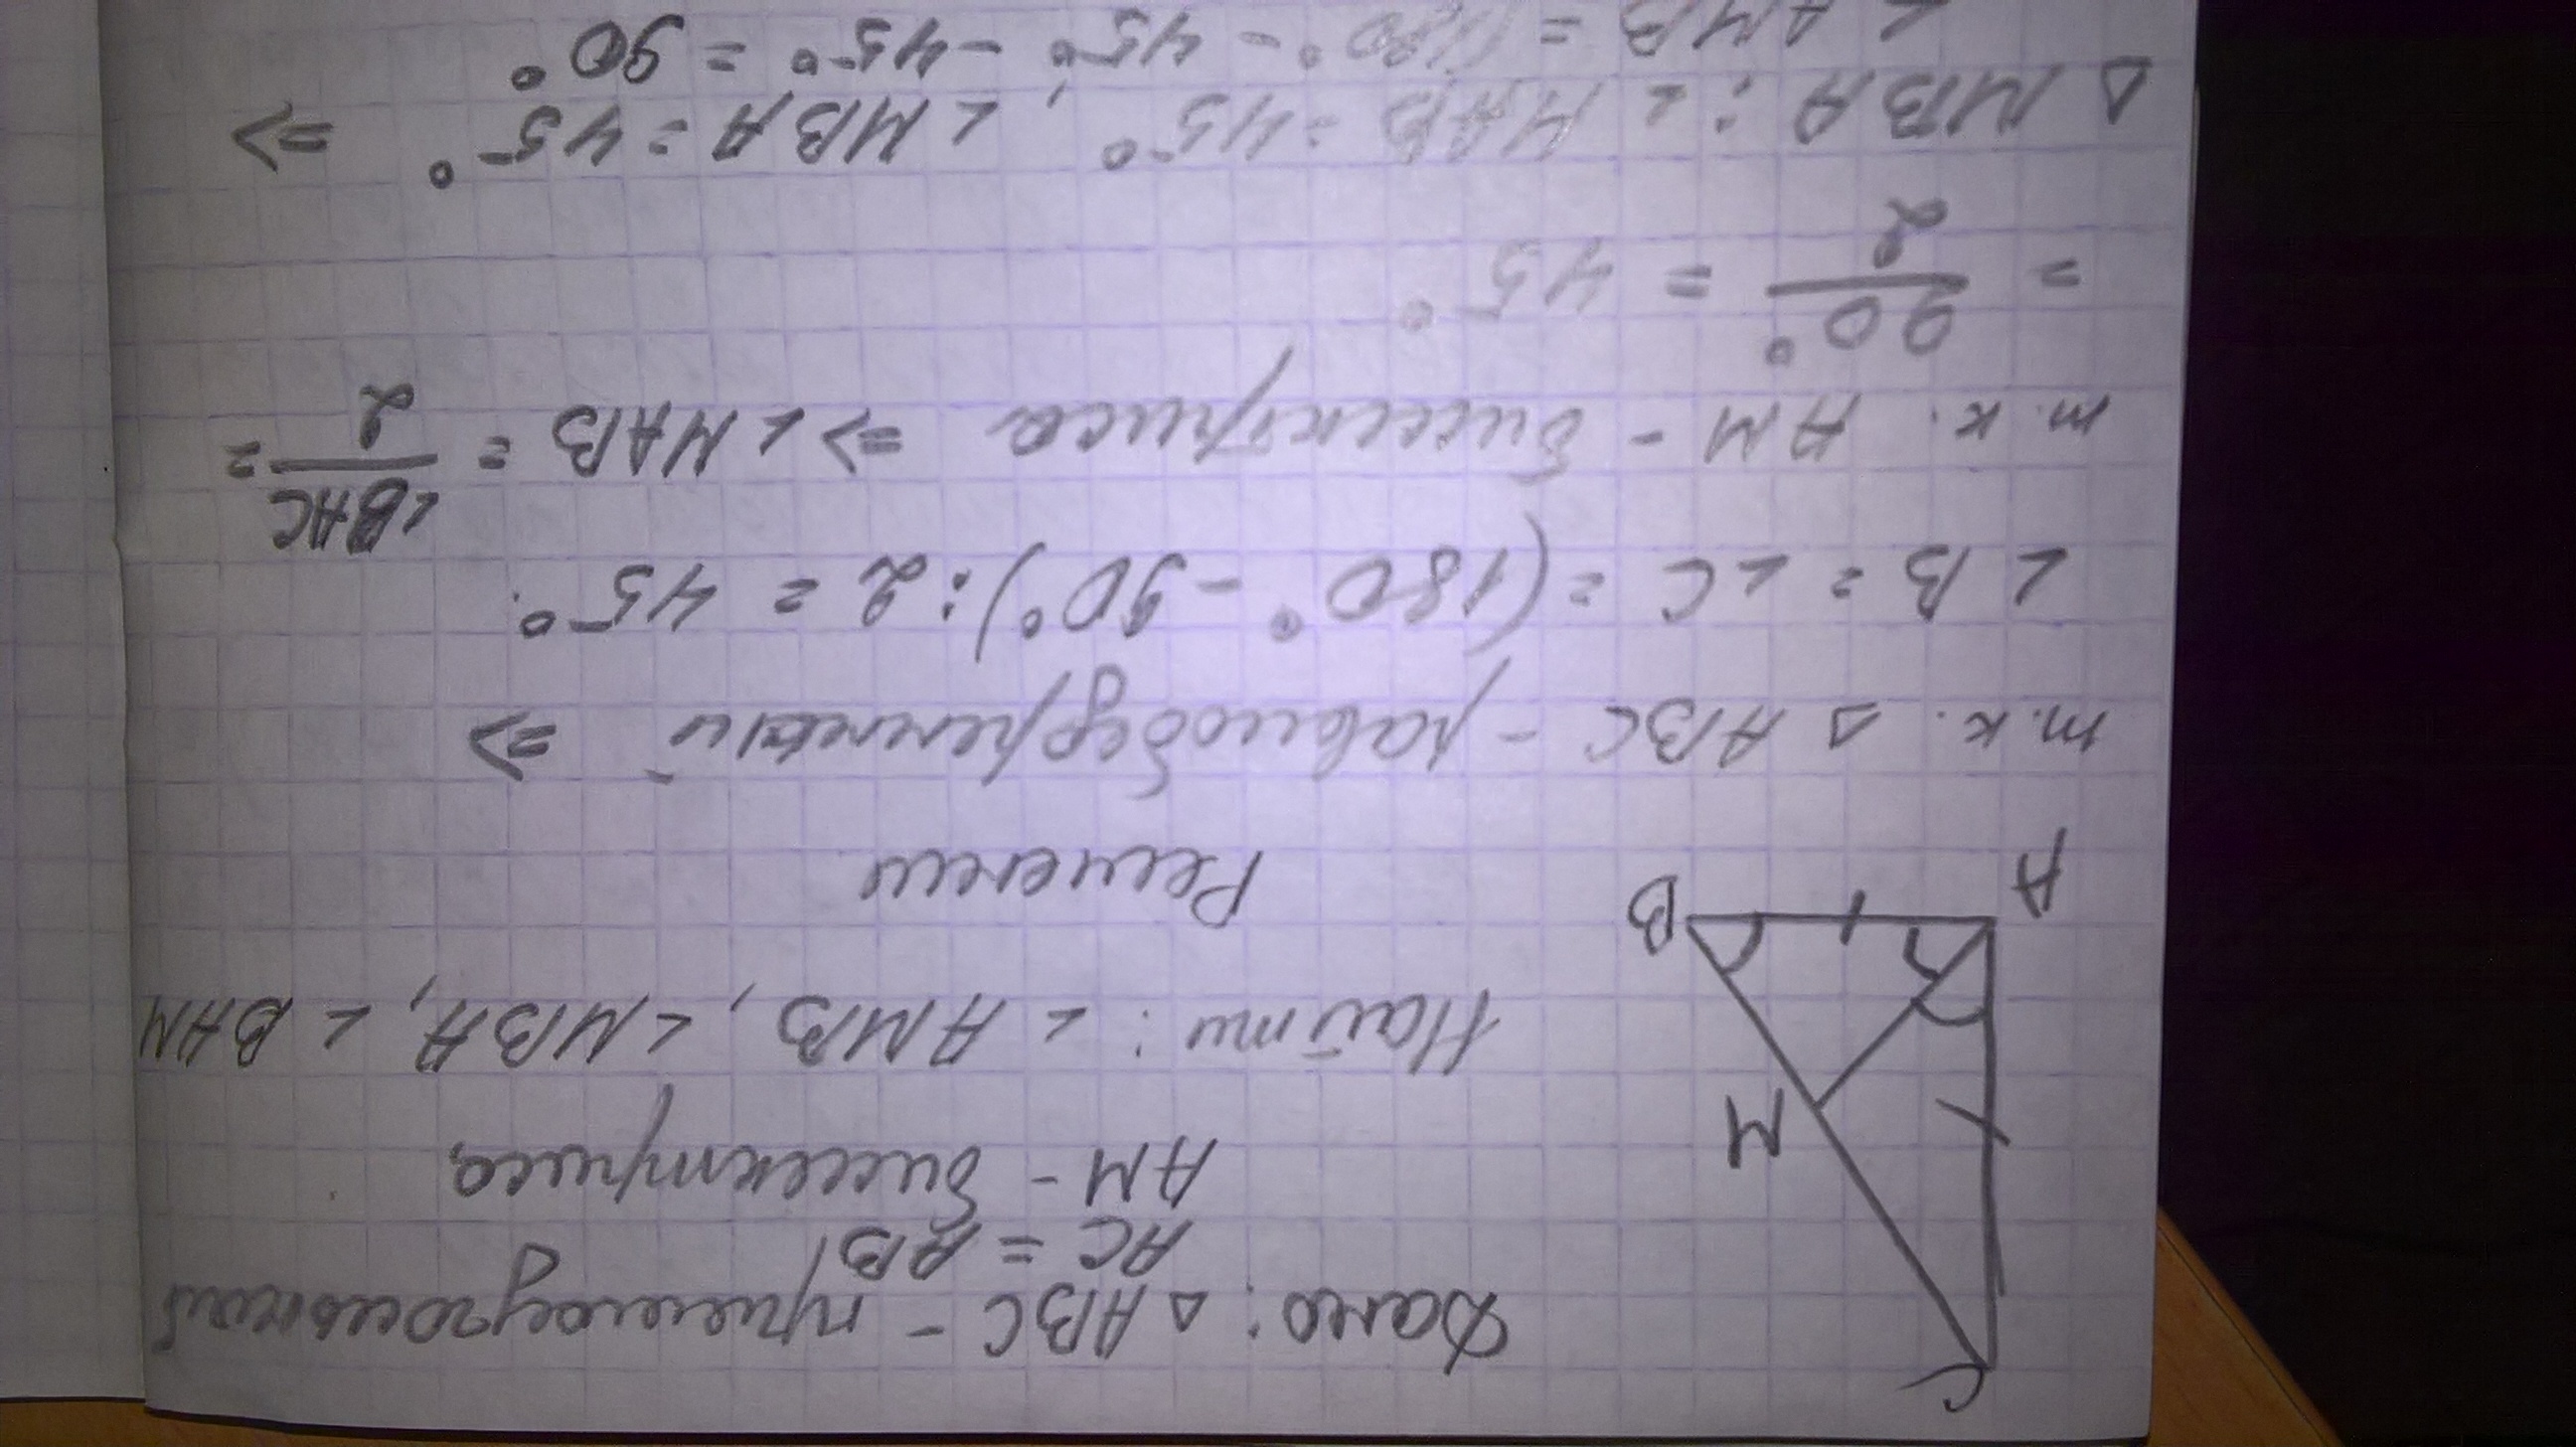 C
M
B
A
Дано: △ ABC - прямоугольный
AC = AB,
AM - биссектриса
Найти: ∠ AMB, ∠MBA, ∠ BAM
Решение
т.к. △ ABC - равнобедренный ⇒
∠ B = ∠ C = (180° - 90°) : 2 = 45°.
т.к. AM - биссектриса ⇒ ∠ MAB = ∠BAC / 2 =
= 90° / 2 = 45°
△ MBA: ∠ MAB = 45°, ∠ MBA = 45° ⇒
∠ AMB = 180° - 45° - 45° = 90°